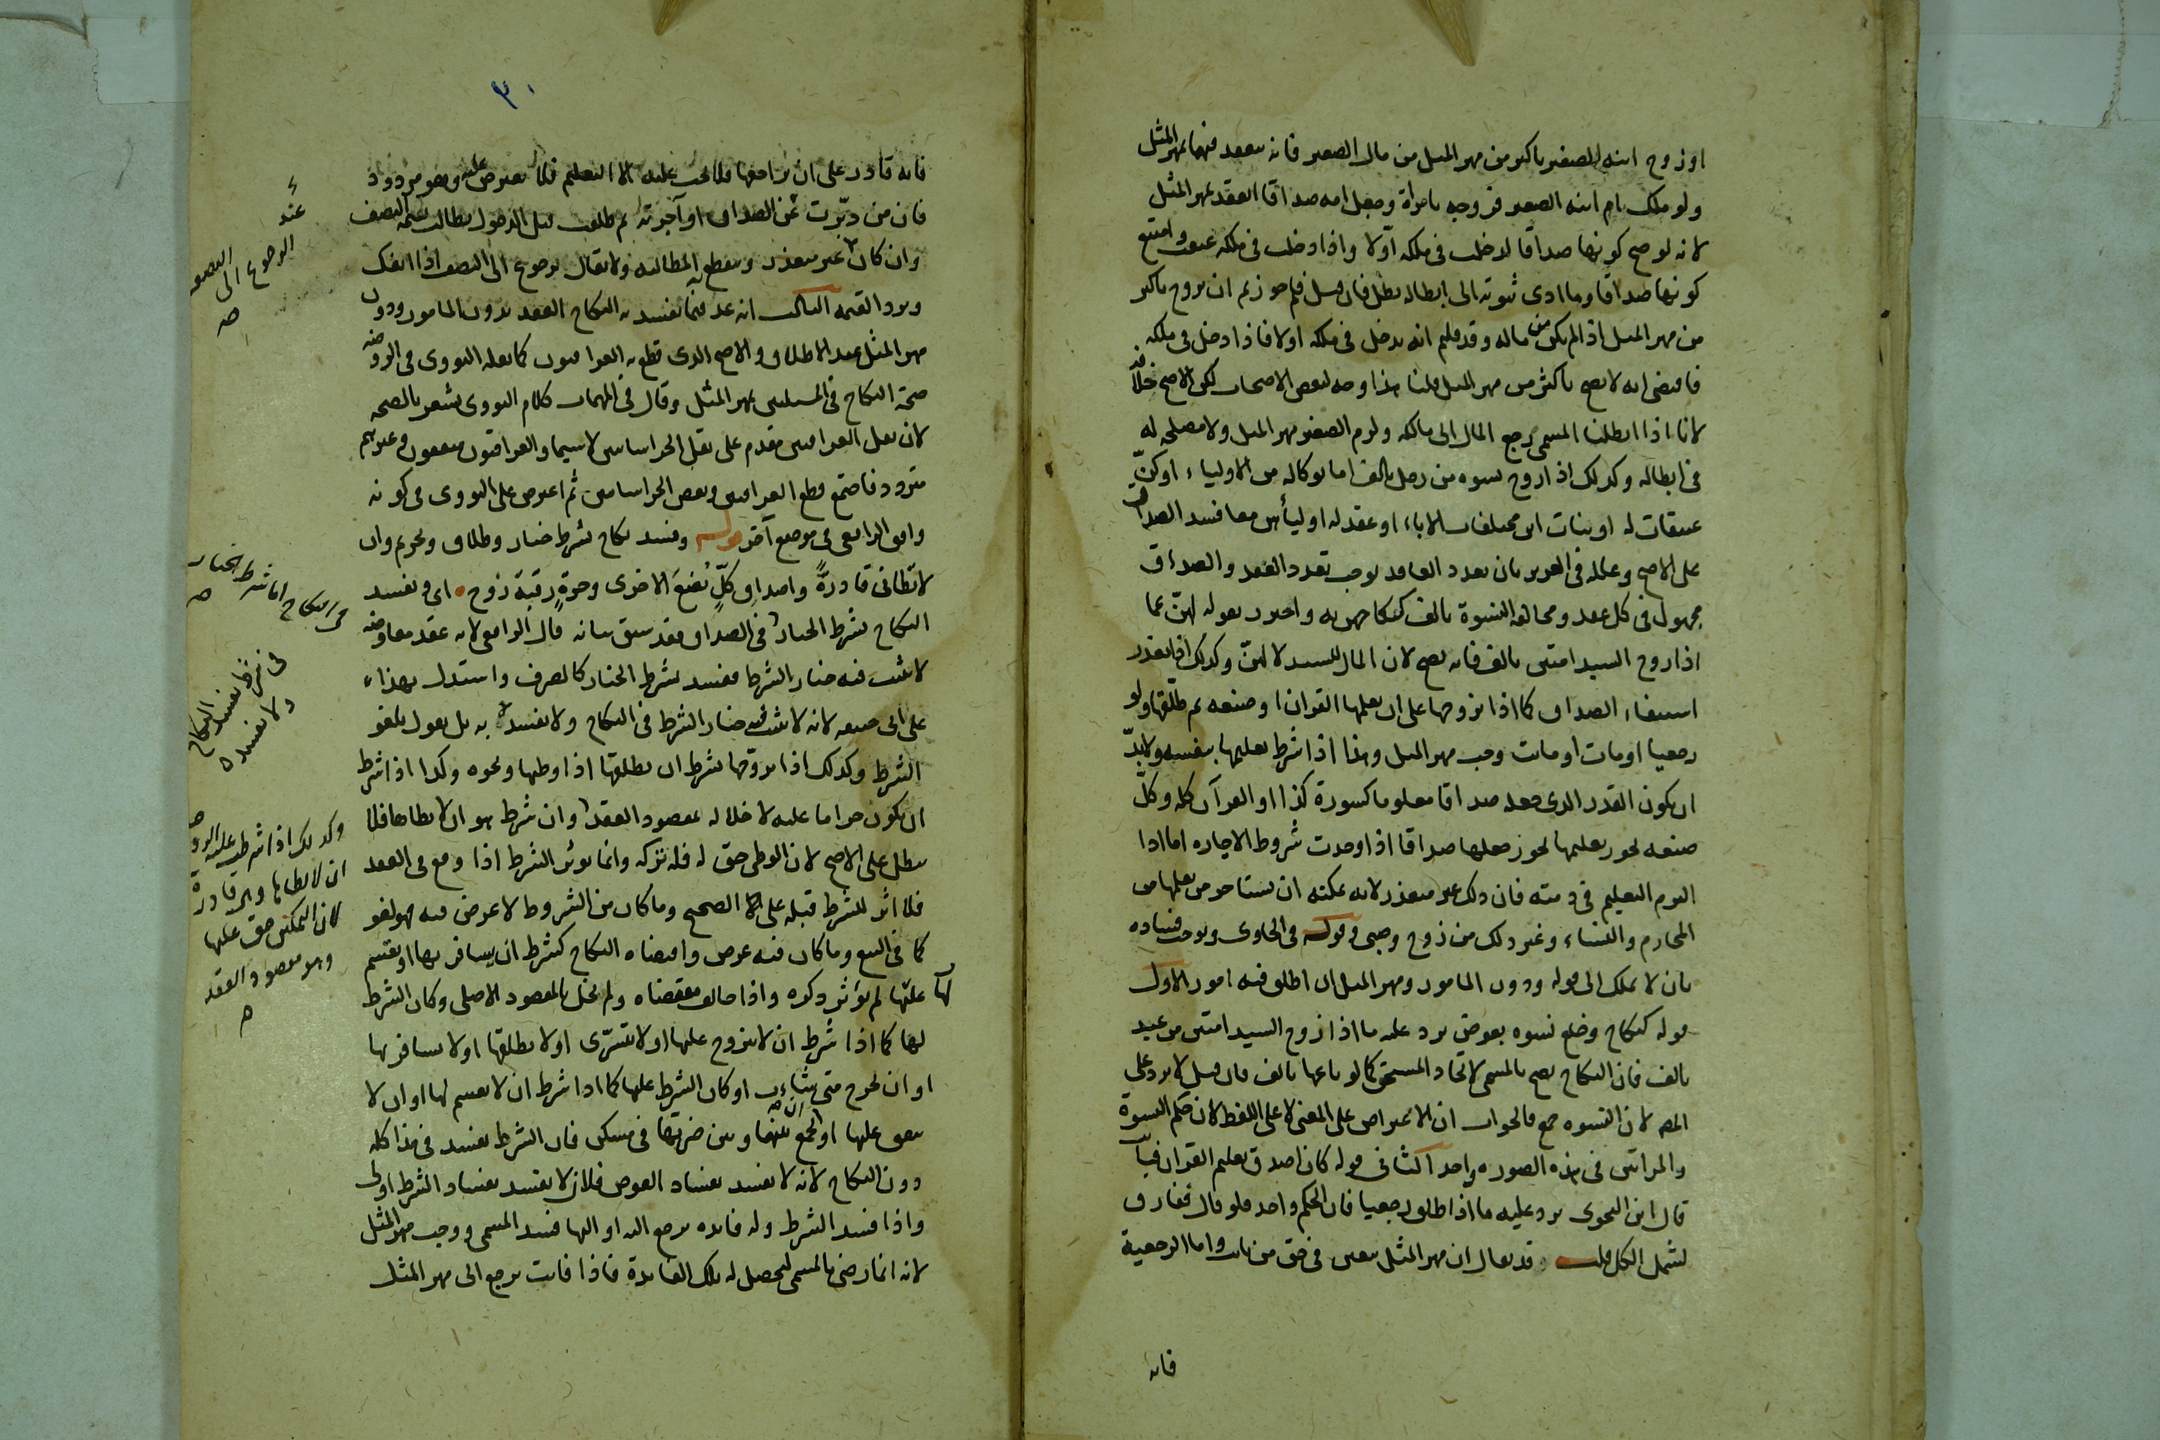 او زوج ابنه الصغير باكثر من مهر المثل من مال الصغير فانه ينعقد فيهما بمهر المثل
ولو ملك ام ابنه الصغير فزوجه بامرأة وجعل امه صداقا انعقد بمهر المثل
لانه لو صح كونها صداقا لدخلت في ملكه اولا واذا دخلت في ملكه عتقت وامتنع
كونها صداقا وما ادى ثبوته الى ابطاله بطل فان قيل فلم جوزتم ان يزوج باكثر
من مهر المثل اذا لم يكن من ماله وقد قلتم انه يدخل في ملكه اولا فاذا دخل في ملكه
فاقتضى انه لا يصح باكثر من مهر المثل قلنا هذا وجه لبعض الاصحاب لكن الاصح خلافه
لانا اذا ابطلنا المسمى رجع المال الى مالكه ولزم الصغير مهر المثل ولا مصلحة له
في ابطاله وكذلك اذا زوج نسوة من رجل بالف اما بوكالة من الاولياء او كنّ
عتيقات له او بنات ابن مختلفات الاباء او عقد له اوليأهن معا فسد الصداق
على الاصح وعلله في العزيز بان تعدد العاقد يوجب تعدد العقد والصداق
مجهول في كل عقد ومخالعة النسوة بالف كنكاحهن به واحترز بقوله لهنّ عما
اذا زوج السيد امتين بالف فانه يصح لان المال للسيد لا لهنّ وكذلك اذا تعذر
استيفاء الصداق كما اذا تزوجها على ان يعلمها القران او صنعة ثم طلقها ولو
رجعيا او مات او ماتت وجب مهر المثل وهذا اذا شرط تعليمها بنفسه ولابدّ
ان يكون القدر الذي جعله صداقا معلوما كسورة كذا او القرآن كله وكلّ
صنعة يجوز تعليمها يجوز جعلها صداقا اذا وجدت شروط الاجارة اما اذا
التزم التعليم في ذمته فان ذلك غير متعذر لانه يمكنه ان يستاجر من يعلمها من
المحارم والنساء وغير ذلك من زوج وصبي وقوله في الحاوي ويوجب فساده
بان لا يملك الى قوله ودون المامور ومهر المثل ان اطلق فيه امور الاول
قوله كنكاح وخلع نسوة بعوض يرد عليه ما اذا زوج السيد امتين من عبد
بالف فان النكاح يصح بالمسمى لاتحاد المستحق كما لو باعها بالف فان قيل لا يرد على
المص لان النسوة جمع فالجواب ان الاعتراض على المعنى لا على اللفظ لان حكم النسوة
والمراتين في هذه الصورة واحد الثاني قوله كان اصدق تعليم القران فبان
قال ابن النحوي يرد عليه ما اذا طلق رجعيا فان الحكم واحد فلو قال ففارق
لشمل الكل قلت قد يقال ان مهر المثل يتعين في حق من بانت واما الرجعية
فانه
٣٠
فانه قادر على ان يراجعها فلا يجب عليه الا التعليم فلا يعترض عليه وهو مردود
فان من دبّرت ثمن الصداق او آجرته ثم طلقت قبل الدخول يطالب بقيمة النصف
وان كان غير متعذر وتنقطع المطالبة ولا يقال يرجع الى النصف اذا انفك
ويرد القيمة الثالث انه عد فيما يفسد به النكاح العقد بدون المامور ودون
مهر المثل عند الاطلاق والاصح الذي قطع به العراقيون كما نقله النووي في الروضة
صحة النكاح في المسئلتين بمهر المثل وقال في المهمات كلام النووي يشعر بالصحة
لان نقل العراقيين مقدم على نقل الخراسانيين لاسيما والعراقيون متفقون وغيرهم
متردد فاجتمع قطع العراقيين وبعض الخراسانيين ثم اعترض على النووي في كونه
وافق الرافعي في موضع آخر قوله وفسد نكاح بشرط خيار وطلاق وتحريم وان
لا تطاني قادرةً واصداق كلٍّ بُضعَ الاخرى وحرةٍ رقبة زوج اي ويفسد
النكاح بشرط الخيار في الصداق فقد سبق بيانه قال الرافعي لانه عقد معاوضة
لا يثبت فيه خيار الشرط فيفسد بشرط الخيار كالصرف واستدل بهذا
على ابي حنيفه لانه لا يثبت خيار الشرط في النكاح ولا يفسد به بل يقول يلغو
الشرط وكذلك اذا تزوجها بشرط ان يطلقها اذا وطيها ونحوه وكذا اذا شرط
ان يكون حراما عليه لاخلاله بمقصود العقد وان شرط هو ان لا يطاها فلا
يبطل على الاصح لان الوطي حق له فله تركه وانما يوثر الشرط اذا وقع في العقد
فلا اثر للشرط قبله على الصحيح وما كان من الشروط لا غرض فيه فهو لغو
كما في البيع وما كان فيه غرض واقتضاه النكاح كشرط ان يسافر بها او يقسم
لها عليها لم يؤثر ذكره واذا خالف مقتضاه ولم يخل بالمقصود الاصلي وكان الشرط
لها كما اذا شرط ان لا يتزوج عليها او لا يتسرّى او لا يطلقها او لا يسافر بها
او ان تخرج متى شاءت او كان الشرط عليها كما اذا شرط ان لا يقسم لها او ان لا
ينفق عليها او ان يجمع بينها وبين ضرتها في مسكن فان الشرط يفسد في هذا كله
دون النكاح لانه لا يفسد بفساد العوض فلان لا يفسد بفساد الشرط اولى
واذا فسد الشرط وله فايدة يرجع اليه او اليها فسد المسمى ووجب مهر المثل
لانه انما رضي بالمسمى ليحصل له تلك الفايدة فاذا فاتت يرجع الى مهر المثل
عند
الرجوع الى النصف
صح
في النكاح اما شرط الخيار
صح
ولا يفسده
وكذلك اذا شرطت عليه الزوجة
ان لا يطاها وهي قادرة
لان التمكين حق عليها
وهو مقصود العقد
صح